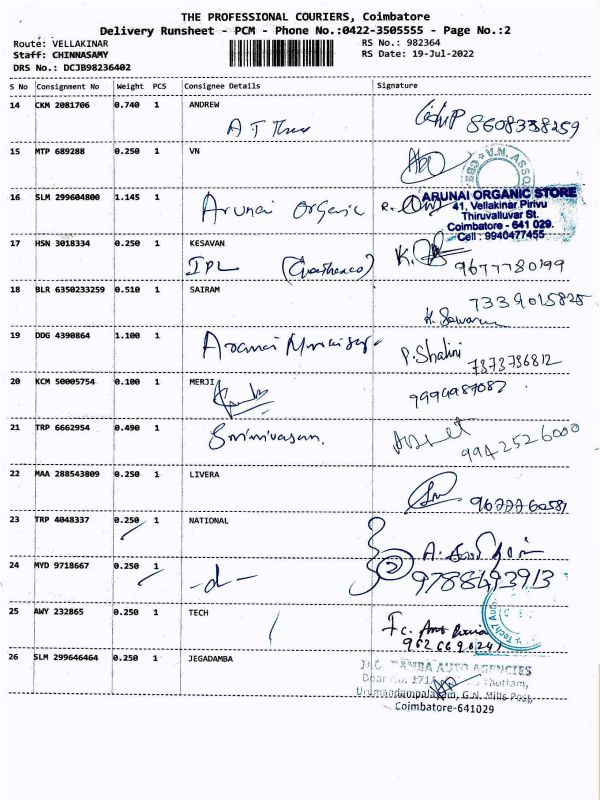 THE PROFESSIONAL COURIERS, Coimbatore
Delivery Runsheet - PCM - Phone No.:0422-3505555 - Page No.:2
Route: VELLAKINAR RS No.: 982364
Staff: CHINNASAMY RS Date: 19-Jul-2022
DRS No.: DCJB98236402
S No Consignment No Weight PCS Consignee Details Signature
14 CKM 2081706 0.740 1 ANDREW
8608338259
15 MTP 689288 0.250 1 VN
V.N. ASSO
16 SLM 299604800 1.145 1 Arunai Organic
ARUNAI ORGANIC STORE
41, Vellakinar Pirivu
Thiruvalluvar St.
Coimbatore - 641 029.
Cell : 9940477455
17 HSN 3018334 0.250 1 KESAVAN
IPL 9677780199
18 BLR 6350233259 0.510 1 SAIRAM
7339015825
19 DDG 4390864 1.100 1
P. Shalini
7373736812
20 KCM 50005754 0.100 1 MERJI
9994987087
21 TRP 6662954 0.490 1 Srinivasan.
9942526000
22 MAA 288543809 0.250 1 LIVERA
23 TRP 4048337 0.250 1 NATIONAL
24 MYD 9718667 0.250 1 -d-
2
9788493913
25 AWY 232865 0.250 1 TECH
26 SLM 299646464 0.250 1 JEGADAMBA
AUTO AGENCIES
Urumandampalayam, G.N. Mills Post,
Coimbatore-641029